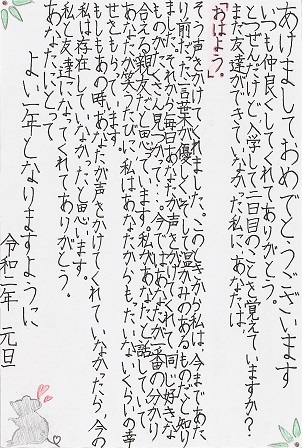 あけましておめでとうございます
いつも仲良くしてくれてありがとう。
とつぜんだけど、入学して三日目のことを覚えていますか?
まだ友達ができていなかった私に、あなたは、
「おはよう。」
そう声をかけてくれました。このときから私は、今まであたり
前だった言葉が優しくそして温かみのあるものだと知り
ました。それから毎日あなたが声をかけてくれて、同じ好きな
ものがたくさん見つかって…。今ではおたがいが一番の分かり
合える親友だと思っています。私があなたと話していて、
あなたが笑うたびに、私はあなたからもったいないくらいの幸
せをもらっています。
もしもあの時、あなたが声をかけてくれていなかったら、今の
私は存在していなかったと思います。
私と友達になってくれてありがとう。
あなたにとって
よい一年となりますように
令和二年 元旦